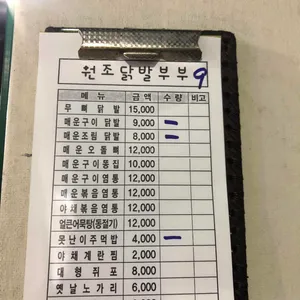 원조닭발부부 9
메뉴 금액 수량 비고
무뼈닭발 15,000
매운구이닭발 9,000 一
매운조림닭발 8,000 一
매운오돌뼈 12,000
매운구이똥집 10,000
매운구이염통 12,000
매운볶음염통 12,000
야채볶음염통 12,000
얼큰어묵탕(동절기) 12,000
못난이주먹밥 4,000 一
야채계란찜 2,000
대형쥐포 8,000
옛날노가리 6,000